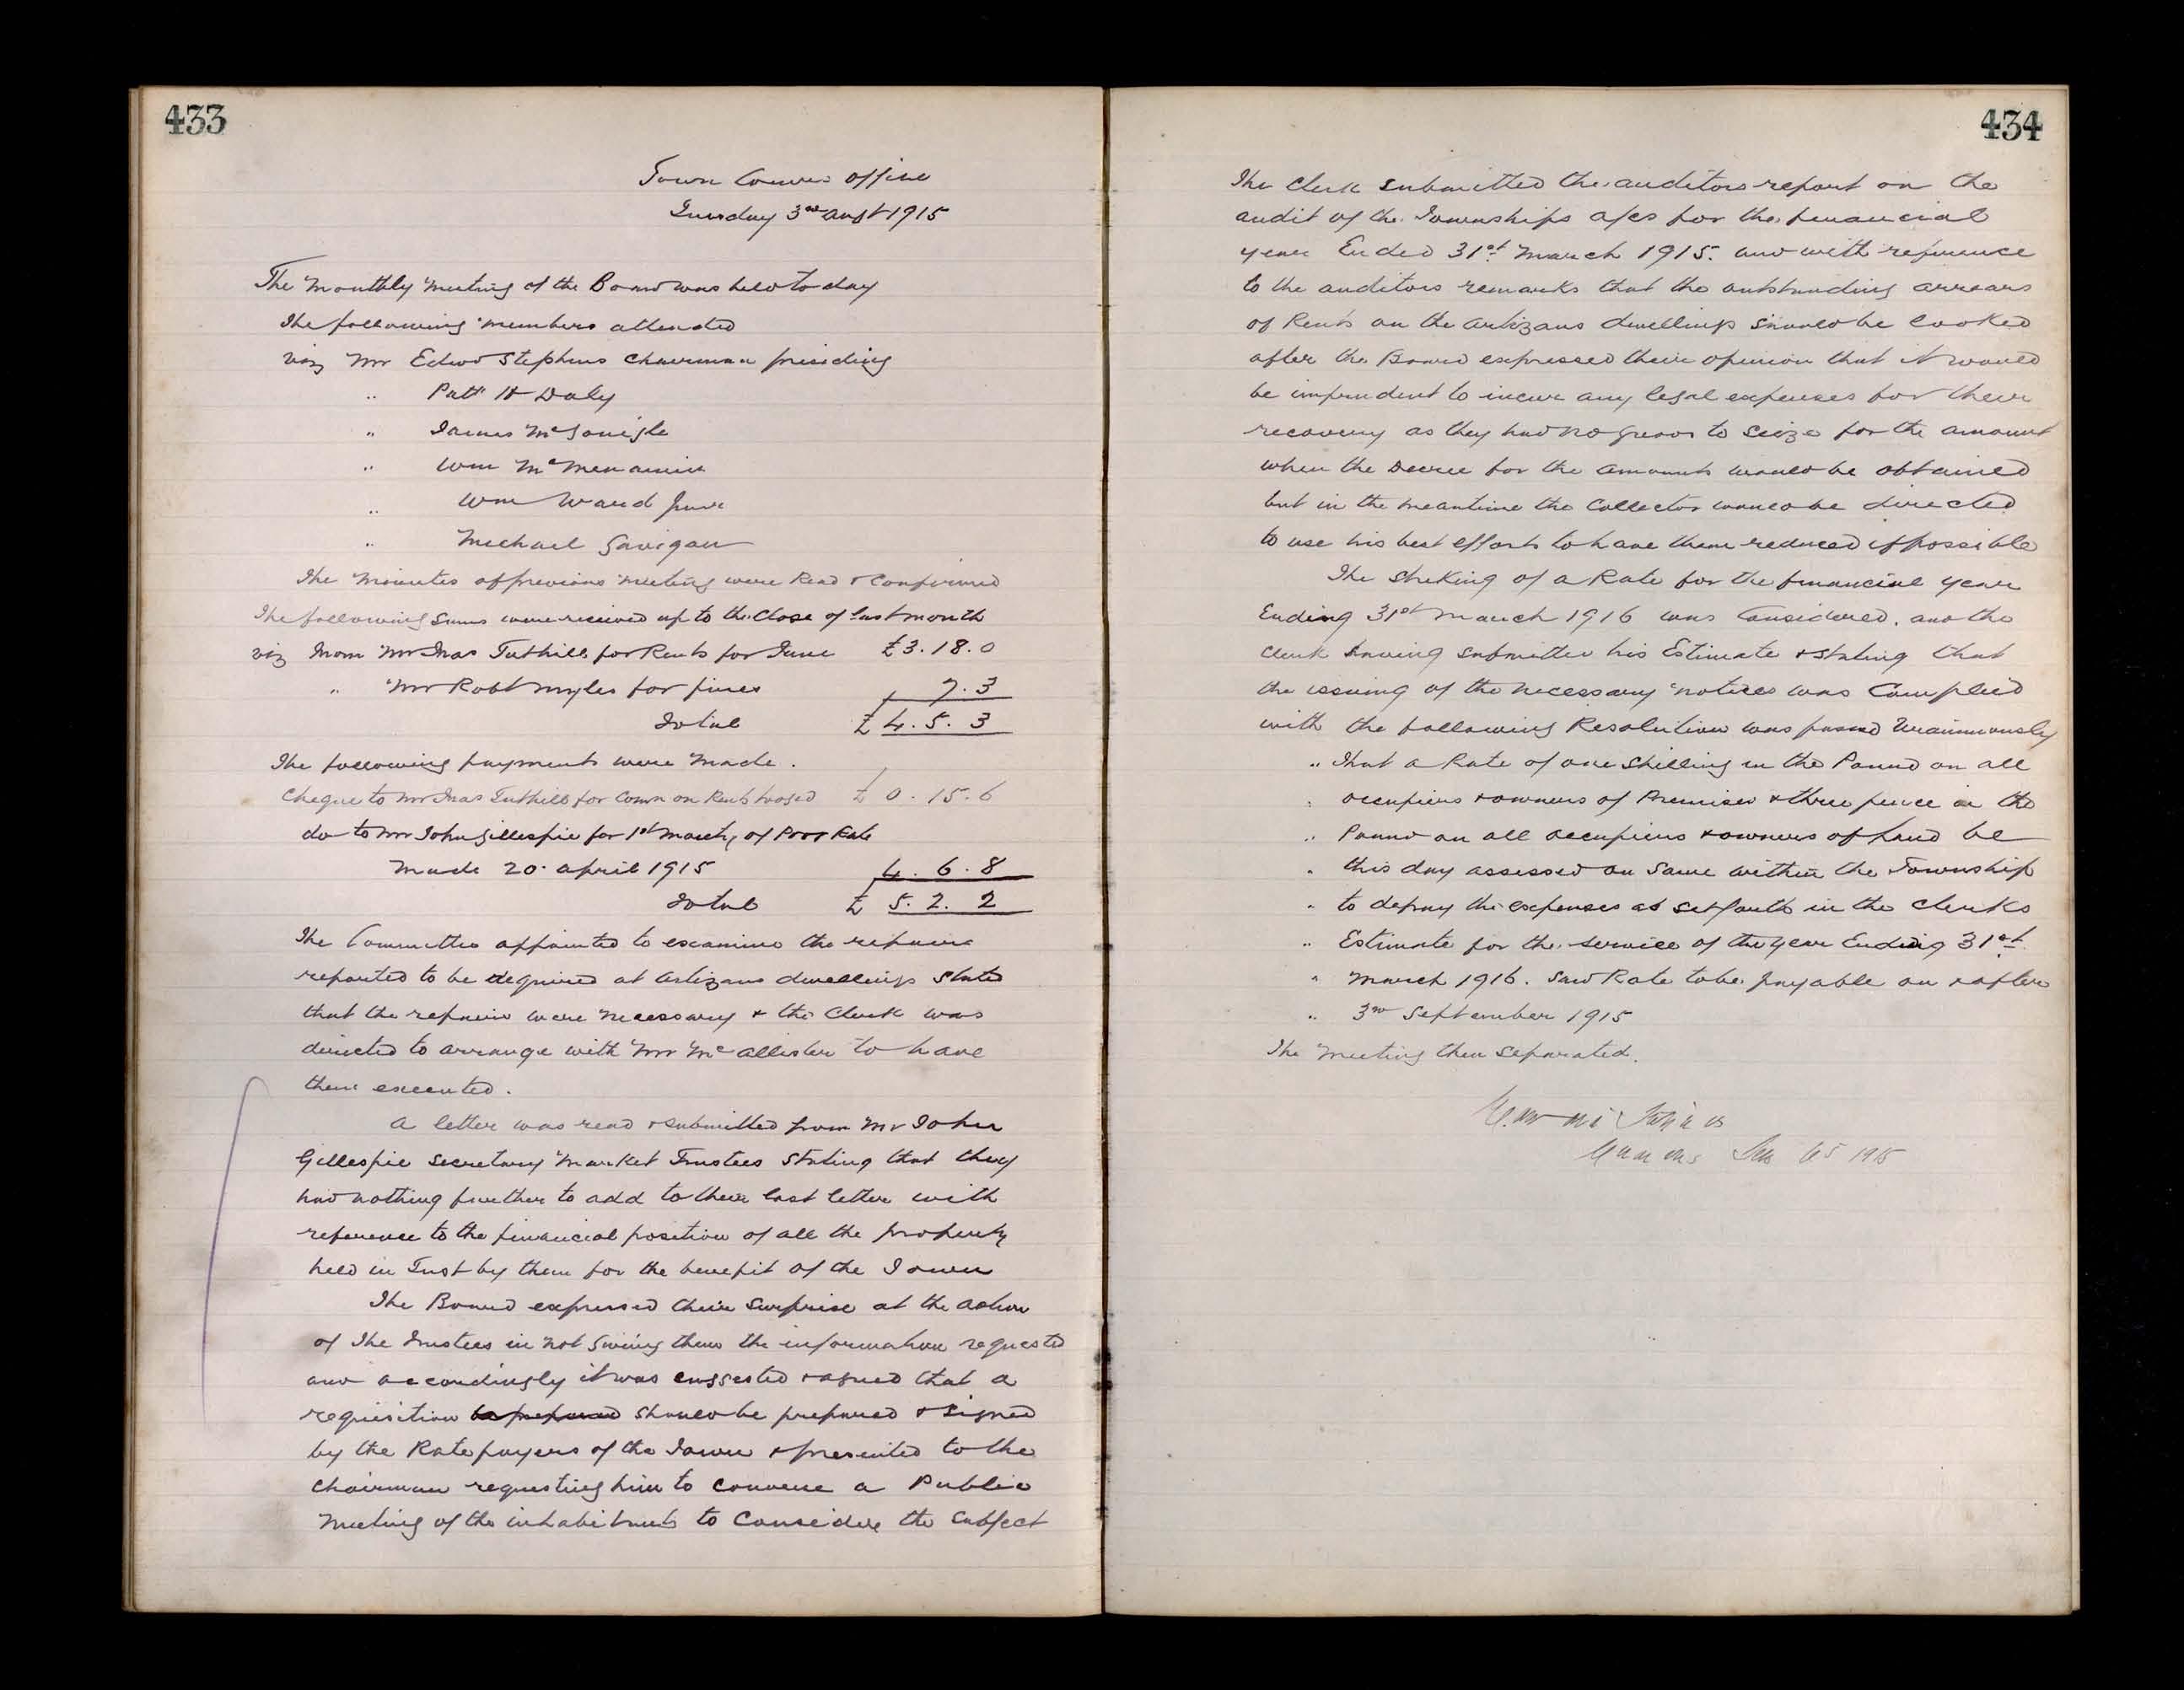 433
Town Comrs Office
Tuesday 3rd Augst 1915
The Monthly Meeting of the Board was held to day
The following Members attended
viz Mr Edwd Stephens Chairman presiding
" Patk H Daly
" James McGonigle
" Wm McMenamin
" Wm Ward Junr
" Michael Gavigan
The Minutes of previous Meeting were Read & Confirmed
The following Sums were received up to the Close of last month
viz From Mr Jnas Tuthill for Rents for June £3.18.0
" Mr Robt Myles for fines 7.3
Total £4.5.3
The following payments were Made.
Cheque to Mr Jnas Tuthill for Comn on Rents lodged £0.15.6
do to Mr John Gillespie for 1st Moiety of Poor Rate
Made 20 April 1915 4.6.8
Total £5.2.2
The Committee appointed to examine the repairs
reported to be required at Artizans dwellings stated
that the repairs were Necessary & the Clerk was
directed to arrange with Mr McAllister to have
them executed.
A letter was read & submitted from Mr John
Gillespie Secretary Market Trustees Stating that they
had nothing further to add to their last letter with
reference to the financial position of all the property
held in Trust by them for the benefit of the Town
The Board expressed their Surprise at the action
of The Trustees in not Giving them the information requested
and accordingly it was suggested & agreed that a
requisition be prepared should be prepared & Signed
by the Ratepayers of the Town & presented to the
Chairman requesting him to convene a Public
Meeting of the inhabitants to Consider the Subject
434
The Clerk submitted the auditors report on the
audit of the Townships a/cs for the financial
year Ended 31st March 1915. and with reference
to the auditors remarks that the outstanding arrears
of Rents on the Artizans dwellings should be looked
after the Board expressed their opinion that it would
be imprudent to incur any legal expenses for their
recovery as they had no goods to Seize for the amount
when the Decree for the Amounts would be obtained
but in the meantime the Collector would be directed
to use his best efforts to have them reduced if possible
The Striking of a Rate for the financial year
Ending 31st March 1916 was Considered. and the
Clerk having submitted his Estimate & stating that
the issuing of the necessary notices was Complied
with the following Resolution was passed Unanimously
" That a Rate of one Shilling in the Pound on all
" occupiers & owners of Premises & three pence in the
" Pound on all occupiers & owners of Land be
" this day assessed on Same within the Township
" to defray the expenses as set forth in the Clerks
" Estimate for the service of the year Ending 31st
" March 1916. Said Rate to be payable on & after
" 3rd September 1915
The Meeting then separated.
1915